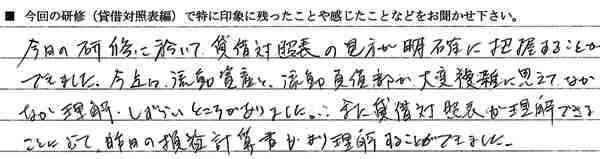 ■ 今回の研修（貸借対照表編）で特に印象に残ったことや感じたことなどをお聞かせ下さい。
今日の研修に於いて、貸借対照表の見方が明確に把握することが
できました。今迄は、流動資産と、流動負債部が大変複雑に思えてなか
なか理解しずらいところがありました。また貸借対照表が理解できる
ことによって、昨日の損益計算書がより理解することができました。